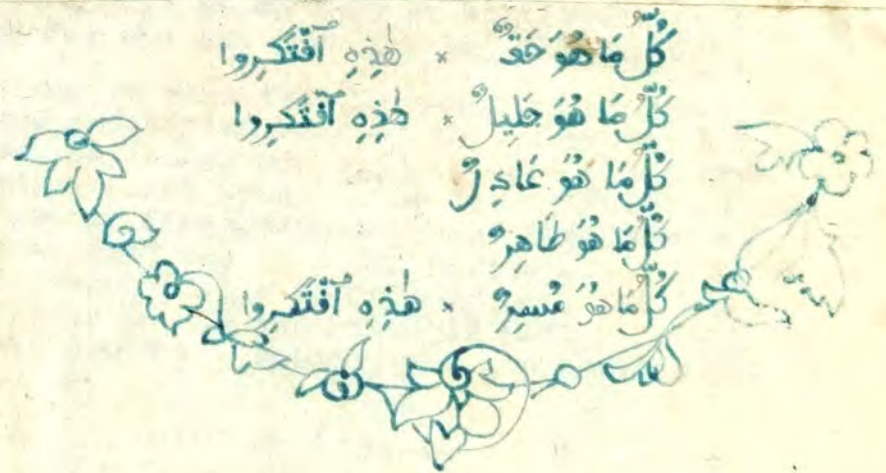 كُلُّ مَا هُوَ حَقٌّ × هٰذِهِ ٱفْتَكِرُوا
كُلُّ مَا هُوَ جَلِيلٌ × هٰذِهِ ٱفْتَكِرُوا
كُلُّ مَا هُوَ عَادِلٌ
كُلُّ مَا هُوَ طَاهِرٌ
كُلُّ مَا هُوَ مُسِرٌّ × هٰذِهِ ٱفْتَكِرُوا